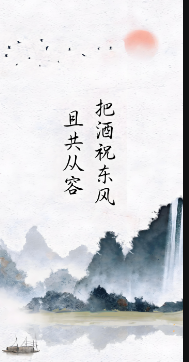 把酒祝东风
且共从容